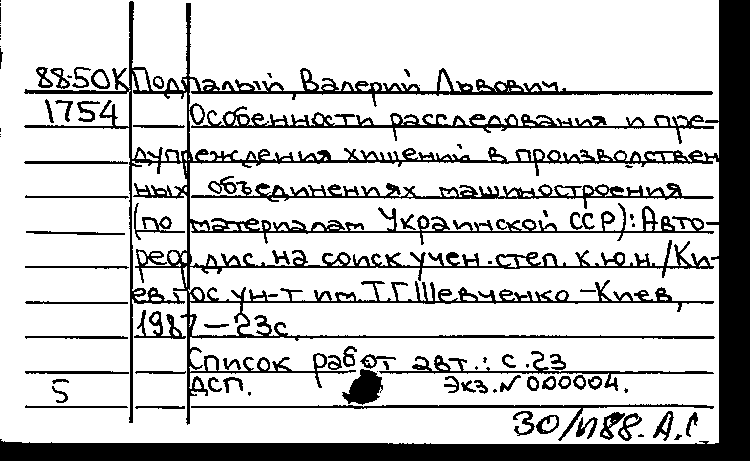 88-50К Подпалый, Валерий Львович.
1754 Особенности расследования и пре-
дупреждения хищений в производствен
ных объединениях машиностроения
(по материалам Украинской ССР): Авто-
реф. дис. на соиск учен. степ. к.ю.н. / Ки-
ев. гос. ун-т им. Т.Г. Шевченко - Киев,
1987 - 23с.
Список работ авт.: с. 23
5 ДСП. Экз. N 000004.
30/VI 88. А.С.